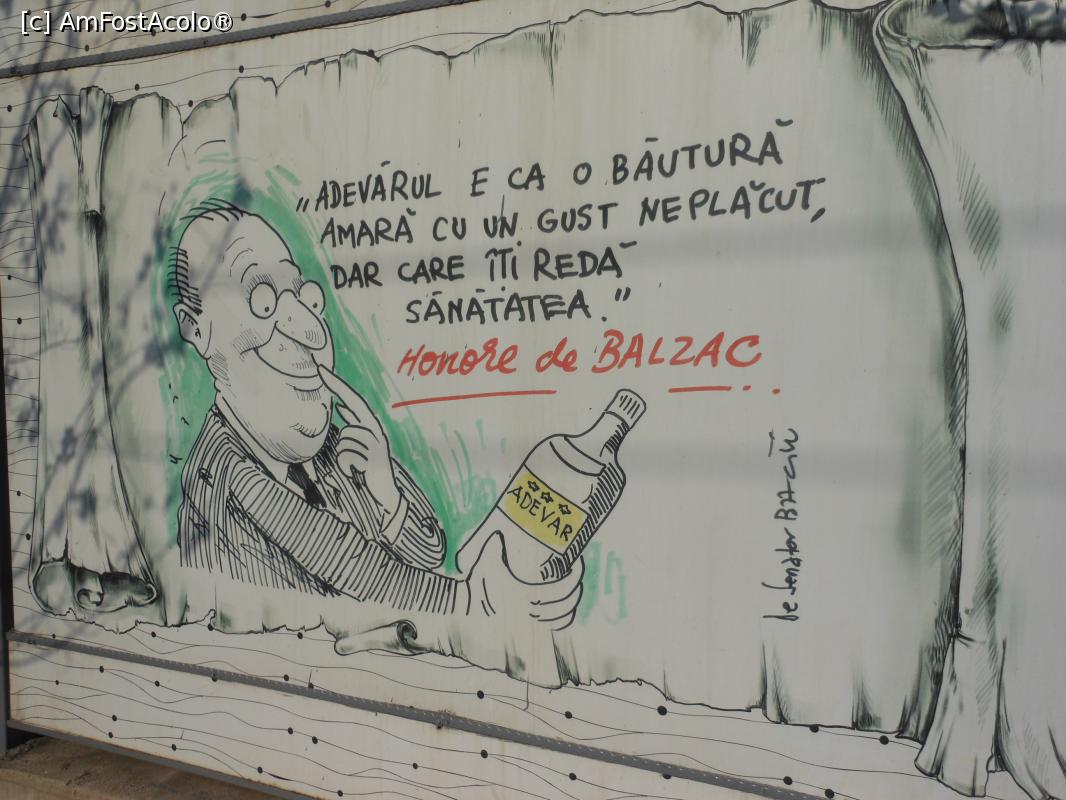 [c] AmFostAcolo®
„ADEVĂRUL E CA O BĂUTURĂ
AMARĂ CU UN GUST NEPLĂCUT,
DAR CARE ÎȚI REDĂ
SĂNĂTATEA."
Honore de BALZAC
ADEVAR
de Senator BACIU